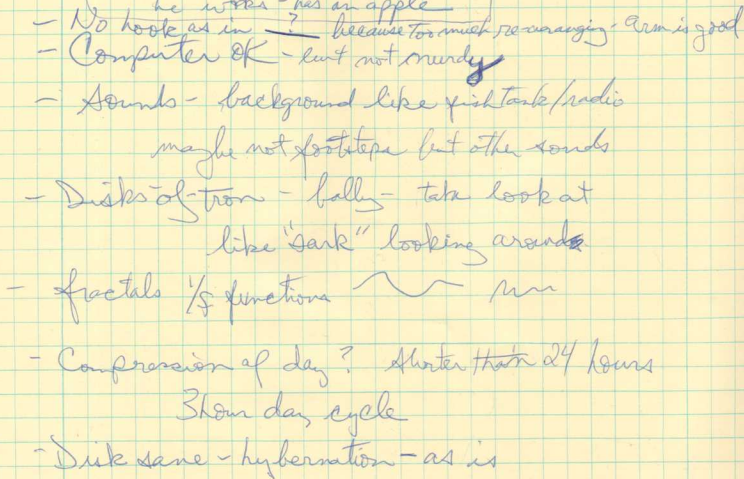 he works - has an apple
- No hook as in ? because too much re-arranging - arm is good
- Computer OK - but not nurdy
- Sounds - background like fishtank/radio
maybe not footsteps but other sounds
- Disks-of-tron - bally - take look at
like "sark" looking around
- fractals 1/f functions
- Compression of day? Shorter than 24 hours
3 hour day cycle
- Disk save - hybernation - as is